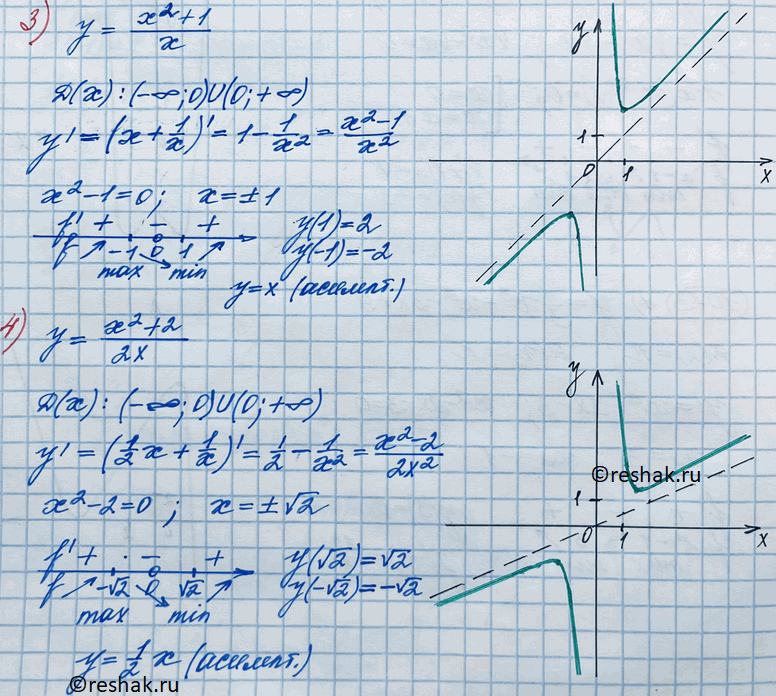 3) y = (x²+1)/x
D(x): (-∞; 0)U(0; +∞)
y' = (x + 1/x)' = 1 - 1/x² = (x²-1)/x²
x²-1=0; x=±1
f' + - +
f -1 0 1
max min
y(1)=2
y(-1)=-2
y=x (асимпт.)
y
1
0 1 x
4) y = (x²+2)/2x
D(x): (-∞; 0)U(0; +∞)
y' = (1/2 x + 1/x)' = 1/2 - 1/x² = (x²-2)/2x²
x²-2=0; x=±√2
f' + - +
f -√2 0 √2
max min
y(√2)=√2
y(-√2)=-√2
y = 1/2 x (асимпт.)
y
©reshak.ru
1
0 1 x
©reshak.ru